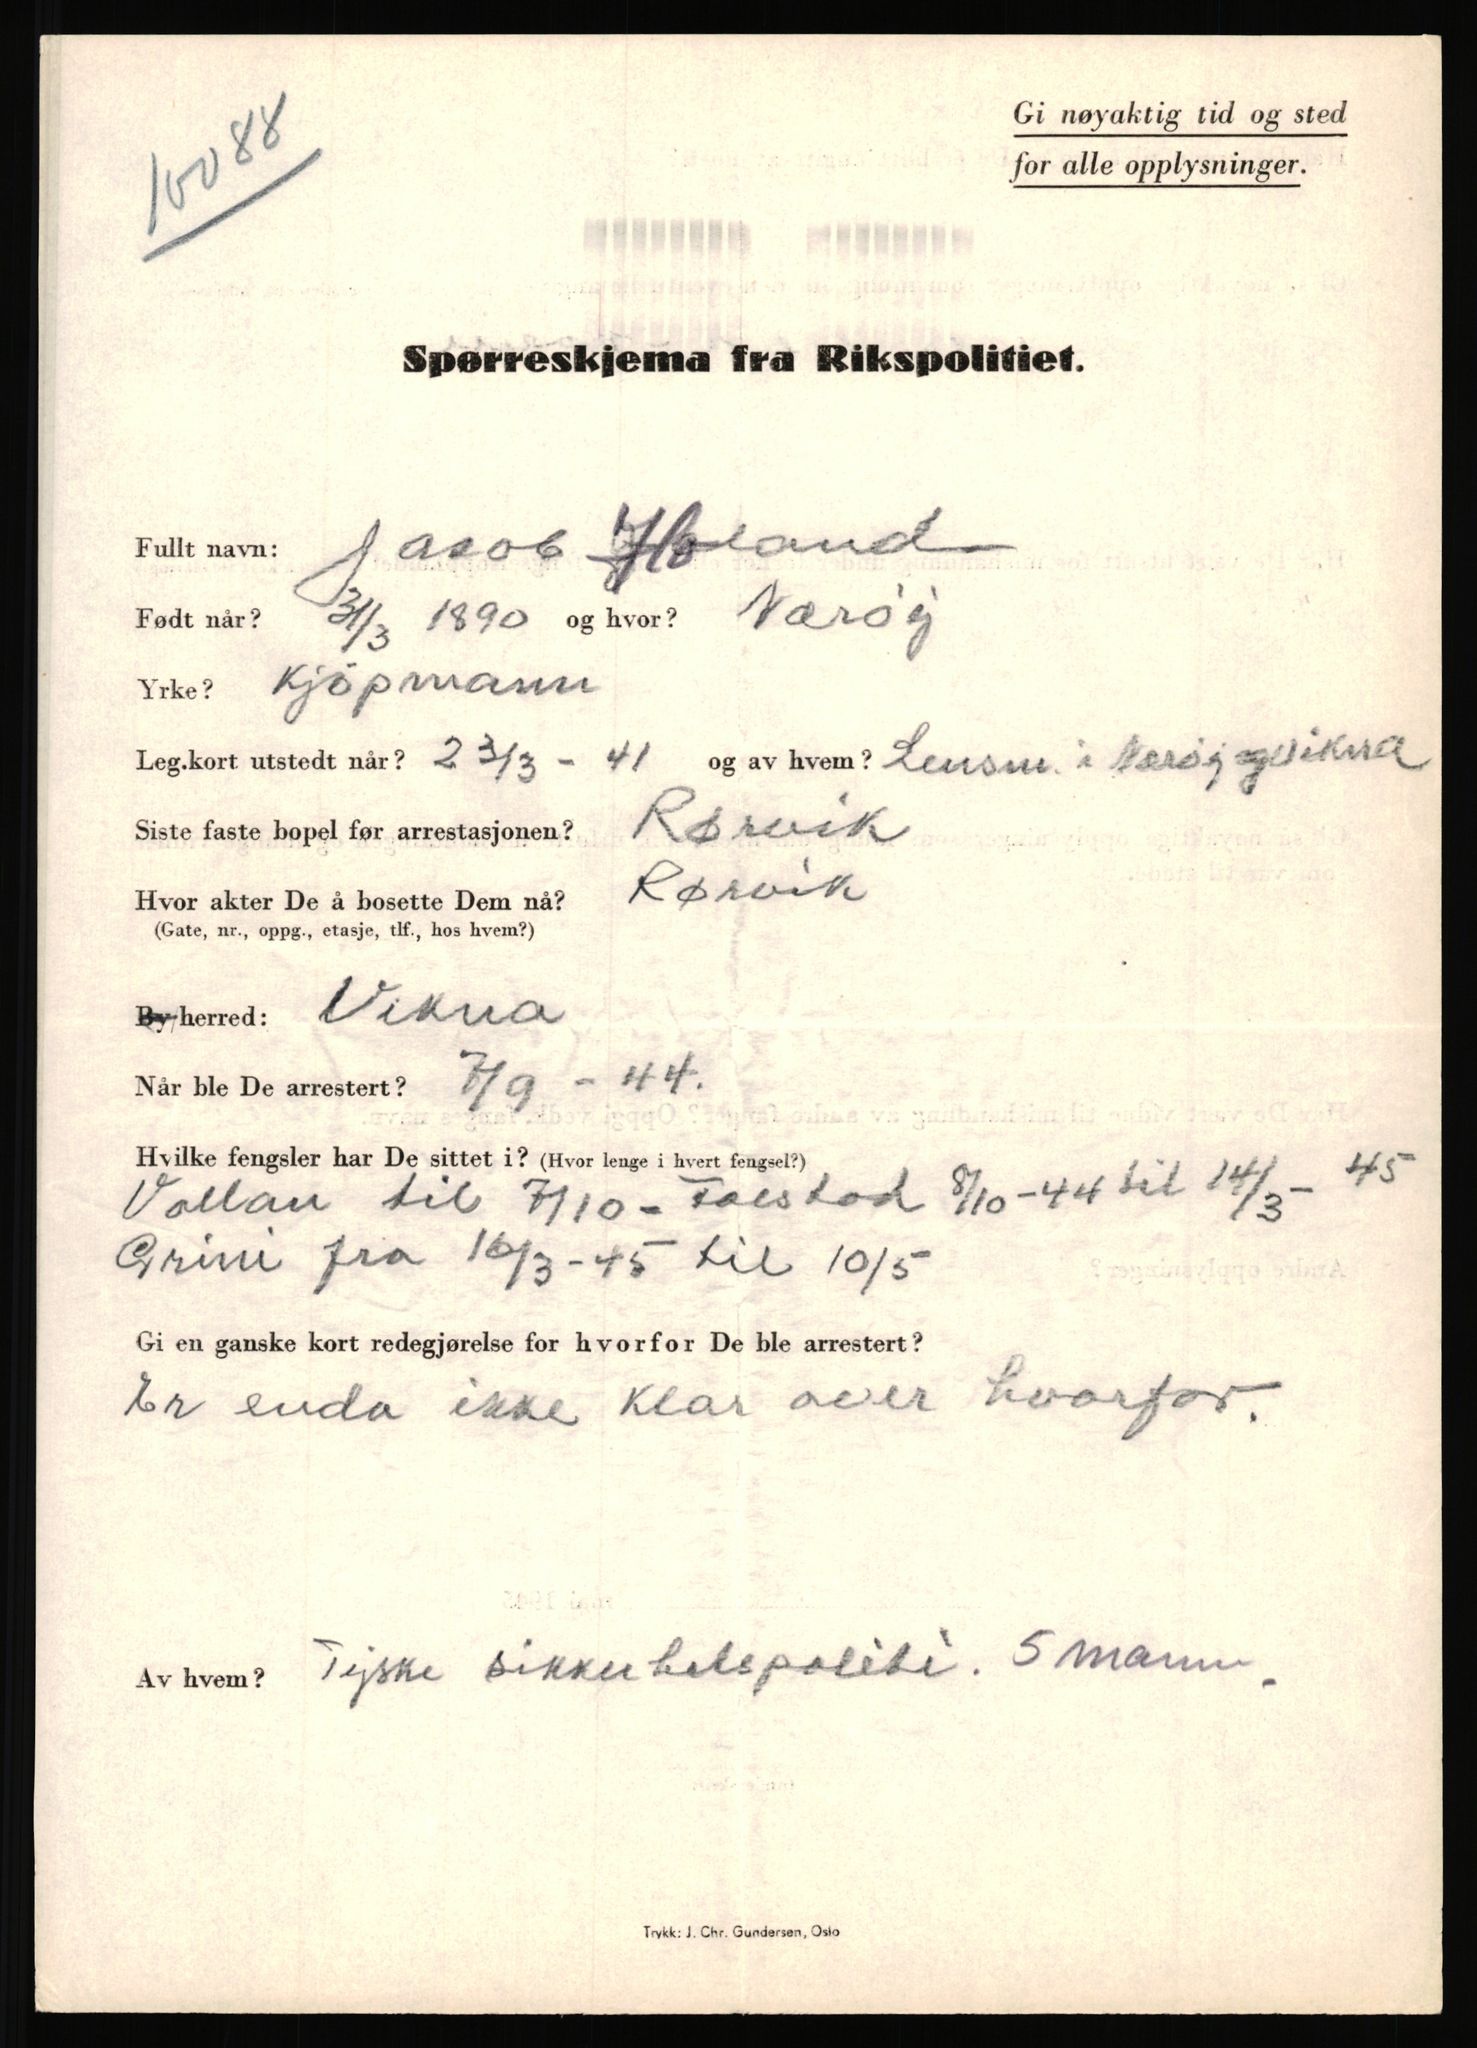 10088
Gi nøyaktig tid og sted
for alle opplysninger.
Spørreskjema fra Rikspolitiet.
Fullt navn: Jacob Holand
Født når? 31/3 1890 og hvor? Nærøy
Yrke? Kjöpmann
Leg.kort utstedt når? 23/3 - 41 og av hvem? Lensm. i Nærøy og Vikna
Siste faste bopel før arrestasjonen? Rørvik
Hvor akter De å bosette Dem nå? Rørvik
(Gate, nr., oppg., etasje, tlf., hos hvem?)
By/herred: Vikna
Når ble De arrestert? 7/9 - 44.
Hvilke fengsler har De sittet i? (Hvor lenge i hvert fengsel?)
Vollan til 7/10 - Falstad 8/10 - 44 til 14/3 - 45
Grini fra 16/3 - 45 til 10/5
Gi en ganske kort redegjørelse for hvorfor De ble arrestert?
Er enda ikke klar over hvorfor.
Av hvem? Tyske sikkerhetspoliti. 5 mann.
Trykk: J. Chr. Gundersen, Oslo